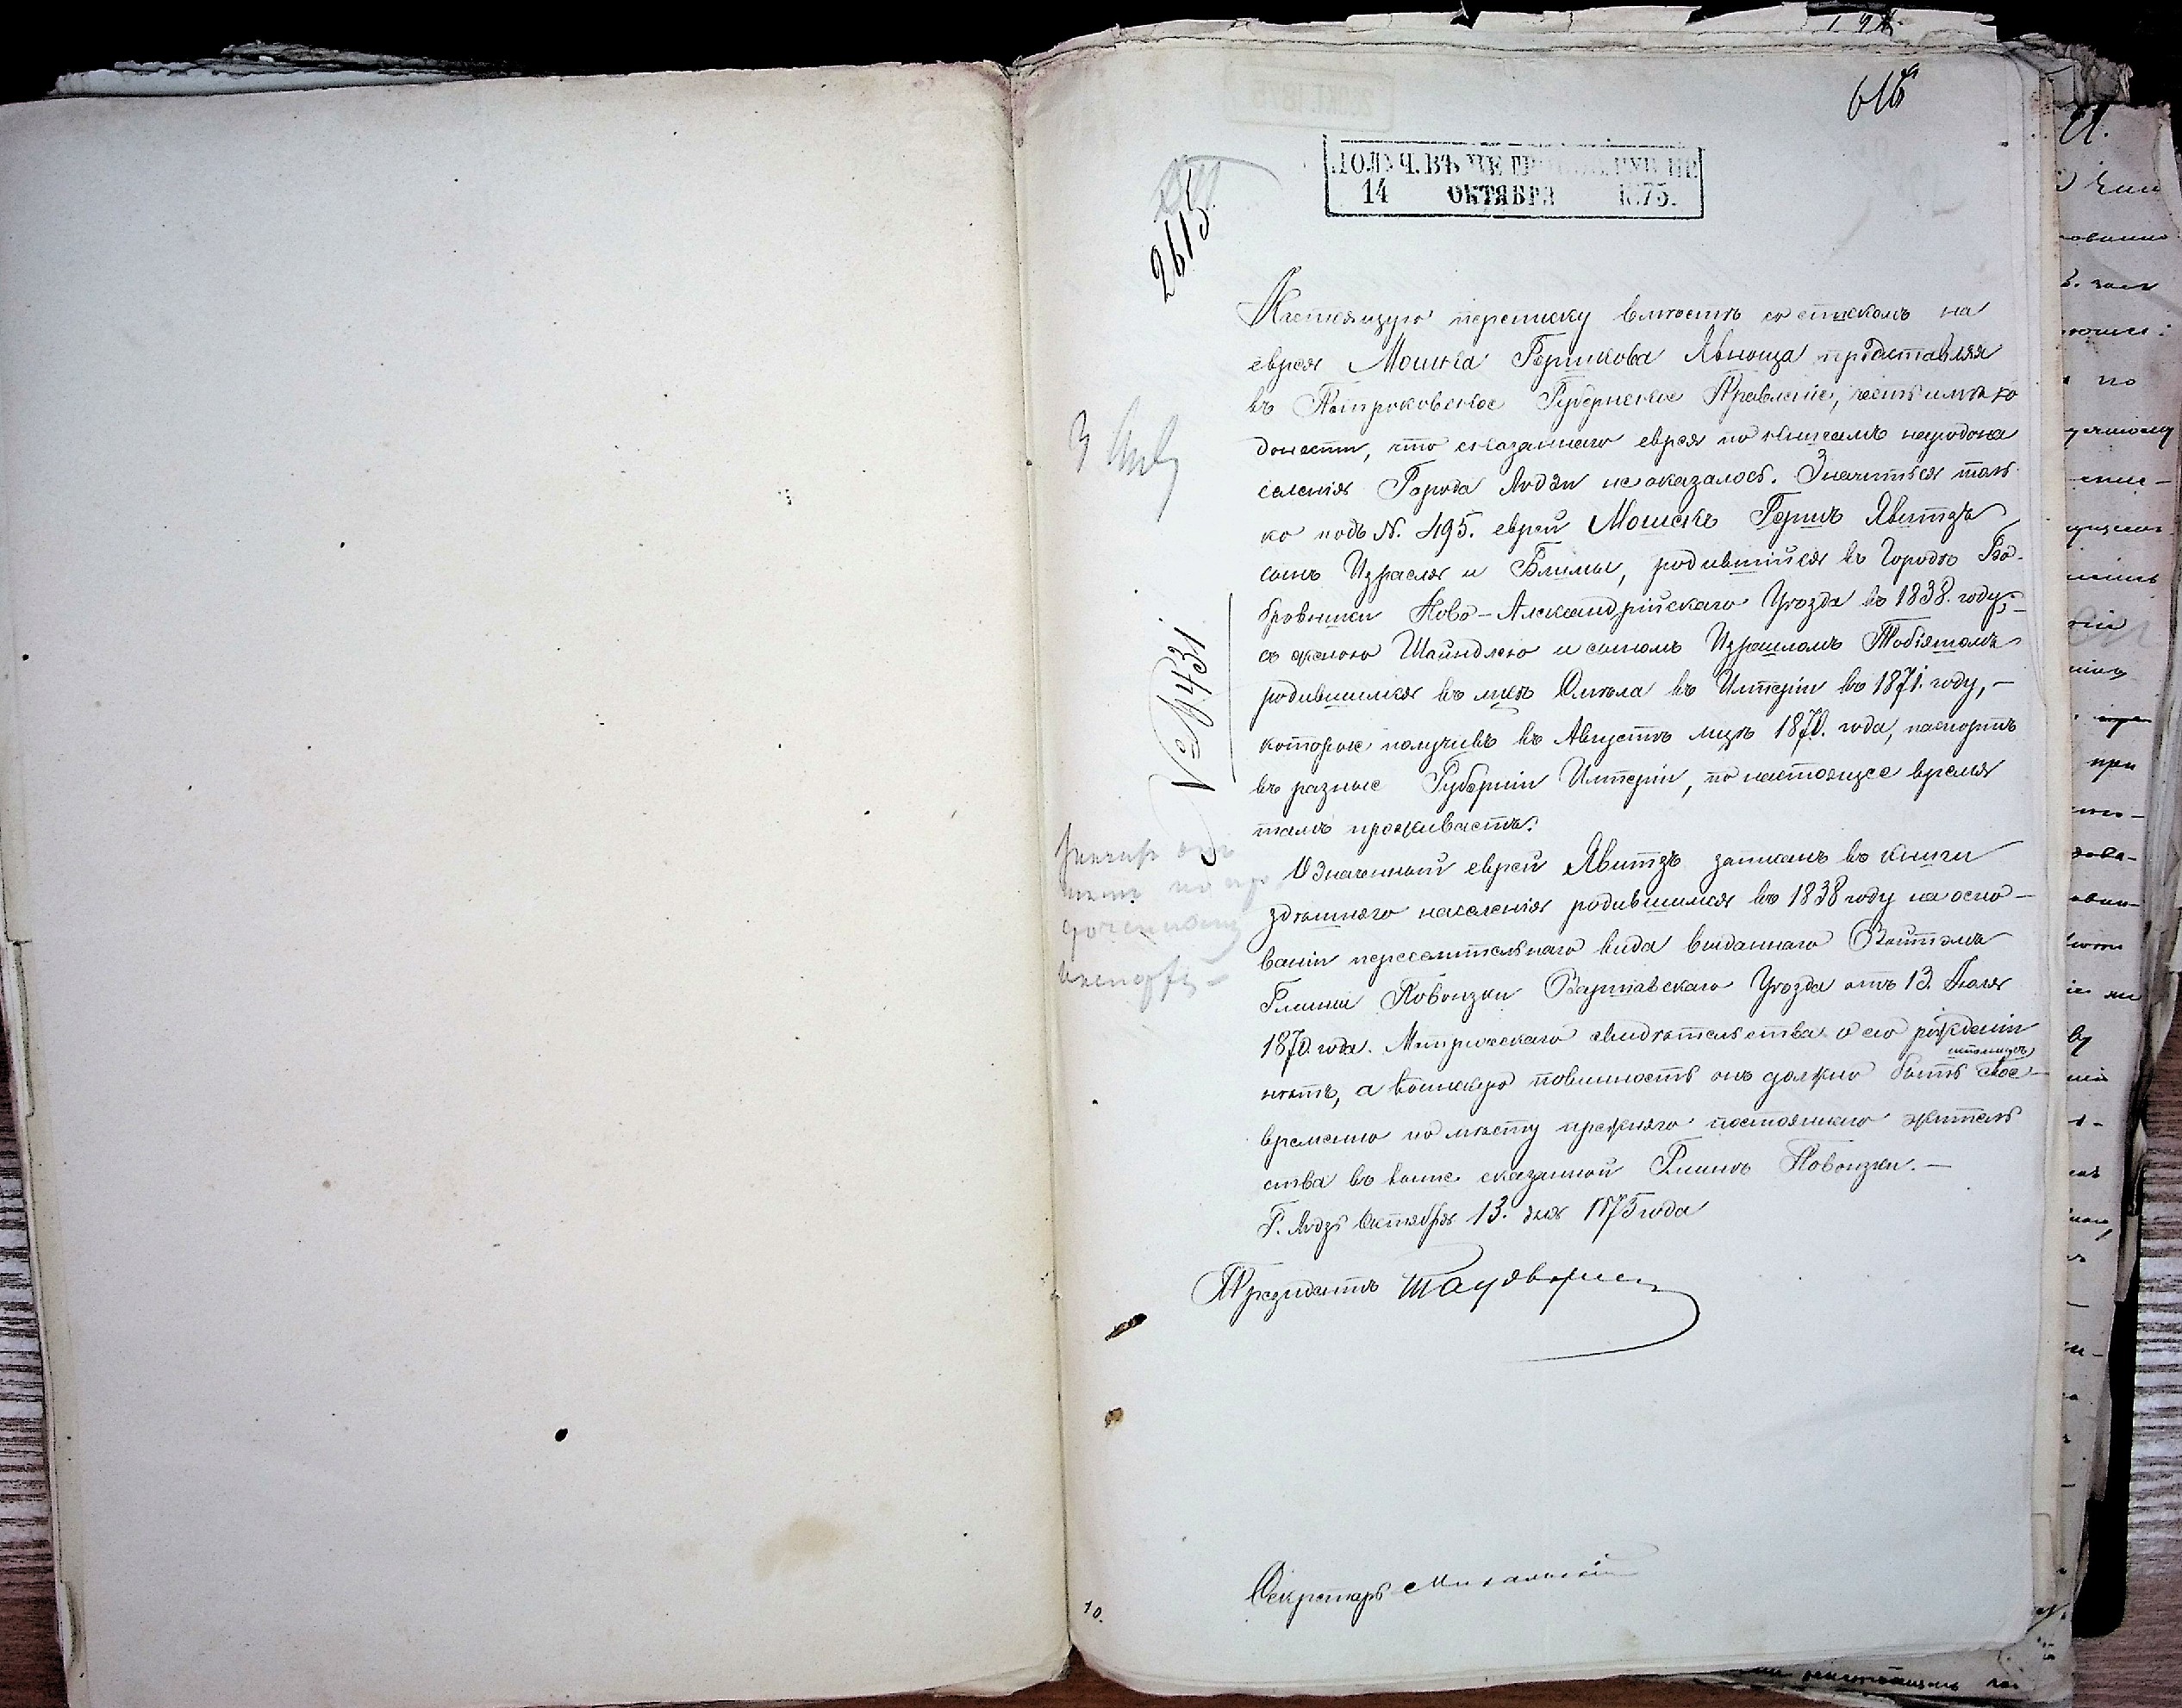 616
ПОЛУЧ. ВЪ ПЕТРОКОВ. ГУБ. ПР.
14 ОКТЯБРЯ 1875.
2615
Настоящую переписку вместѣ со спискомъ на
еврея Мошка Гершкова Явноща представляя
въ Петроковское Губернское Правленіе, честь имѣю
донести, что сказаннаго еврея по книгамъ народона
селенія Города Лодзи не оказалось. Значиться толь
ко подъ N. 495. еврей Мошекъ Гершъ Явитзъ
сынъ Израеля и Блимы, родившійся въ Городѣ Бо-
бровники Ново-Александрійскаго Уѣзда въ 1838. году,-
съ женою Шайндлею и сыномъ Израилемъ
родившимся въ въ Имперіи въ 1871. году, —
которые получивъ въ Августѣ мцѣ 1870. года, паспортъ
въ разные Губерніи Имперіи, по настоящее время
тамъ проживаетъ.
Означенный еврей Явитзъ записанъ въ книги
здѣшняго населенія родившимся въ 1838 году на осно-
ваніи переселительнаго вида выданнаго Войтомъ
Гмины Повонзки Варшавскаго Уѣзда отъ 13. Іюля
1870. года. Метрическаго свидѣтельства о его рожденіи
нѣтъ, а воинскую повинность онъ долженъ быть свое-
временно по мѣсту прежняго постояннаго житель
ства въ выше сказанной Гминѣ Повонзки. —
Г. Лодзь Октября 13. дня 1875 года
№ 9431
Президентъ
Секретарь Михальскій
10.